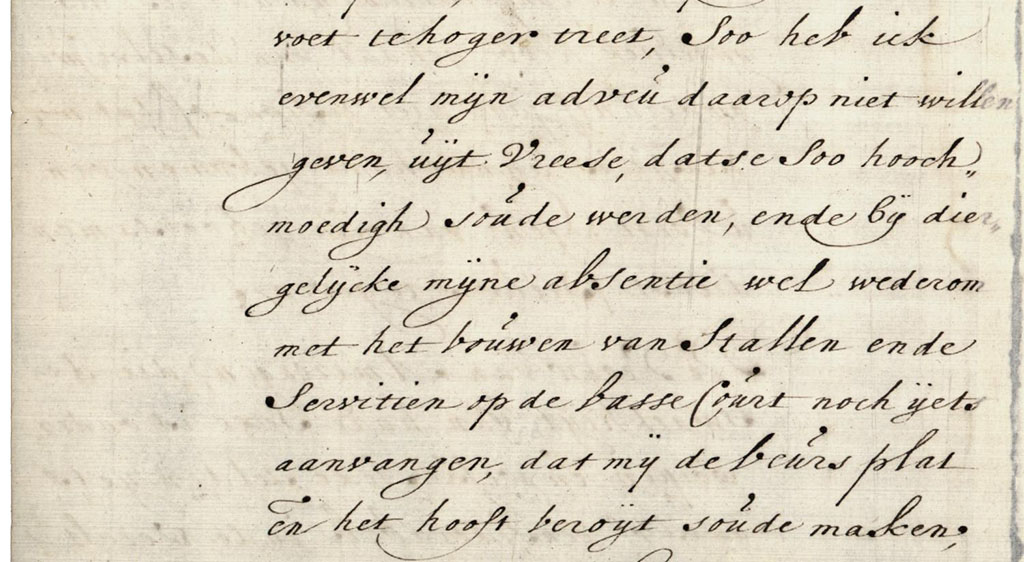 voet te hoger treet, Soo heb ick
evenwel mijn adveu daarop niet willen
geven, uijt Vreese, datse Soo hooch„
moedigh soude werden, ende bij dier„
gelijcke mijne absentie wel wederom
met het bouwen van Stallen ende
Servitien op de basse Court noch ijets
aanvangen, dat mij de beurs plat
en het hooft beroijt soude maken;